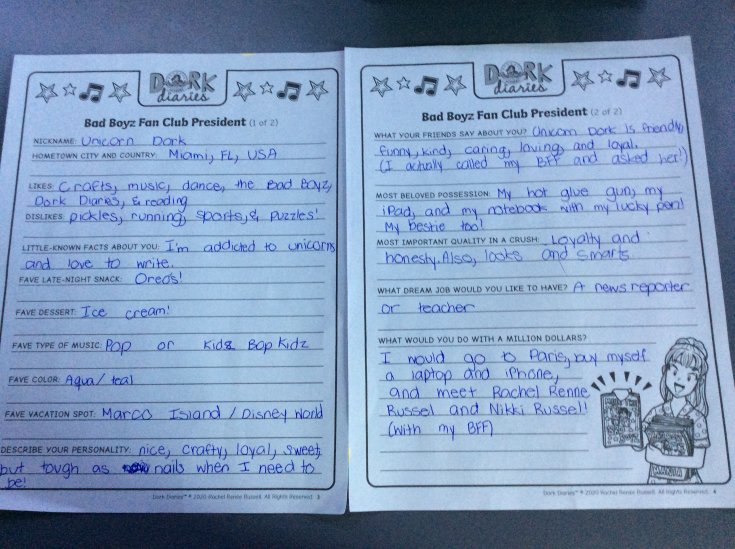 DORK
diaries
Bad Boyz Fan Club President (1 of 2)
NICKNAME: Unicorn Dork
HOMETOWN CITY AND COUNTRY: Miami, FL, USA
LIKES: Crafts, music, dance, the Bad Boyz,
Dork Diaries, & reading
DISLIKES: pickles, running, sports, & puzzles!
LITTLE-KNOWN FACTS ABOUT YOU: I'm addicted to unicorns
and love to write.
FAVE LATE-NIGHT SNACK: Oreos!
FAVE DESSERT: Ice cream!
FAVE TYPE OF MUSIC: Pop or Kidz Bop Kidz
FAVE COLOR: Aqua/teal
FAVE VACATION SPOT: Marco Island/Disney World
DESCRIBE YOUR PERSONALITY: nice, crafty, loyal, sweet,
but tough as nails when I need to
be!
Dork Diaries™ © 2020 Rachel Renée Russell. All Rights Reserved. 3
DORK
diaries
Bad Boyz Fan Club President (2 of 2)
WHAT YOUR FRIENDS SAY ABOUT YOU? Unicorn Dork is friendly,
funny, kind, caring, loving, and loyal.
(I actually called my BFF and asked her!)
MOST BELOVED POSSESSION: My hot glue gun, my
iPad, and my notebook with my lucky pen!
My bestie too!
MOST IMPORTANT QUALITY IN A CRUSH: Loyalty and
honesty. Also, looks and smarts
WHAT DREAM JOB WOULD YOU LIKE TO HAVE? A news reporter
or teacher
WHAT WOULD YOU DO WITH A MILLION DOLLARS?
I would go to Paris, buy myself
a laptop and iPhone,
and meet Rachel Renne
Russel and Nikki Russel!
(with my BFF)
Dork Diaries™ © 2020 Rachel Renée Russell. All Rights Reserved. 4